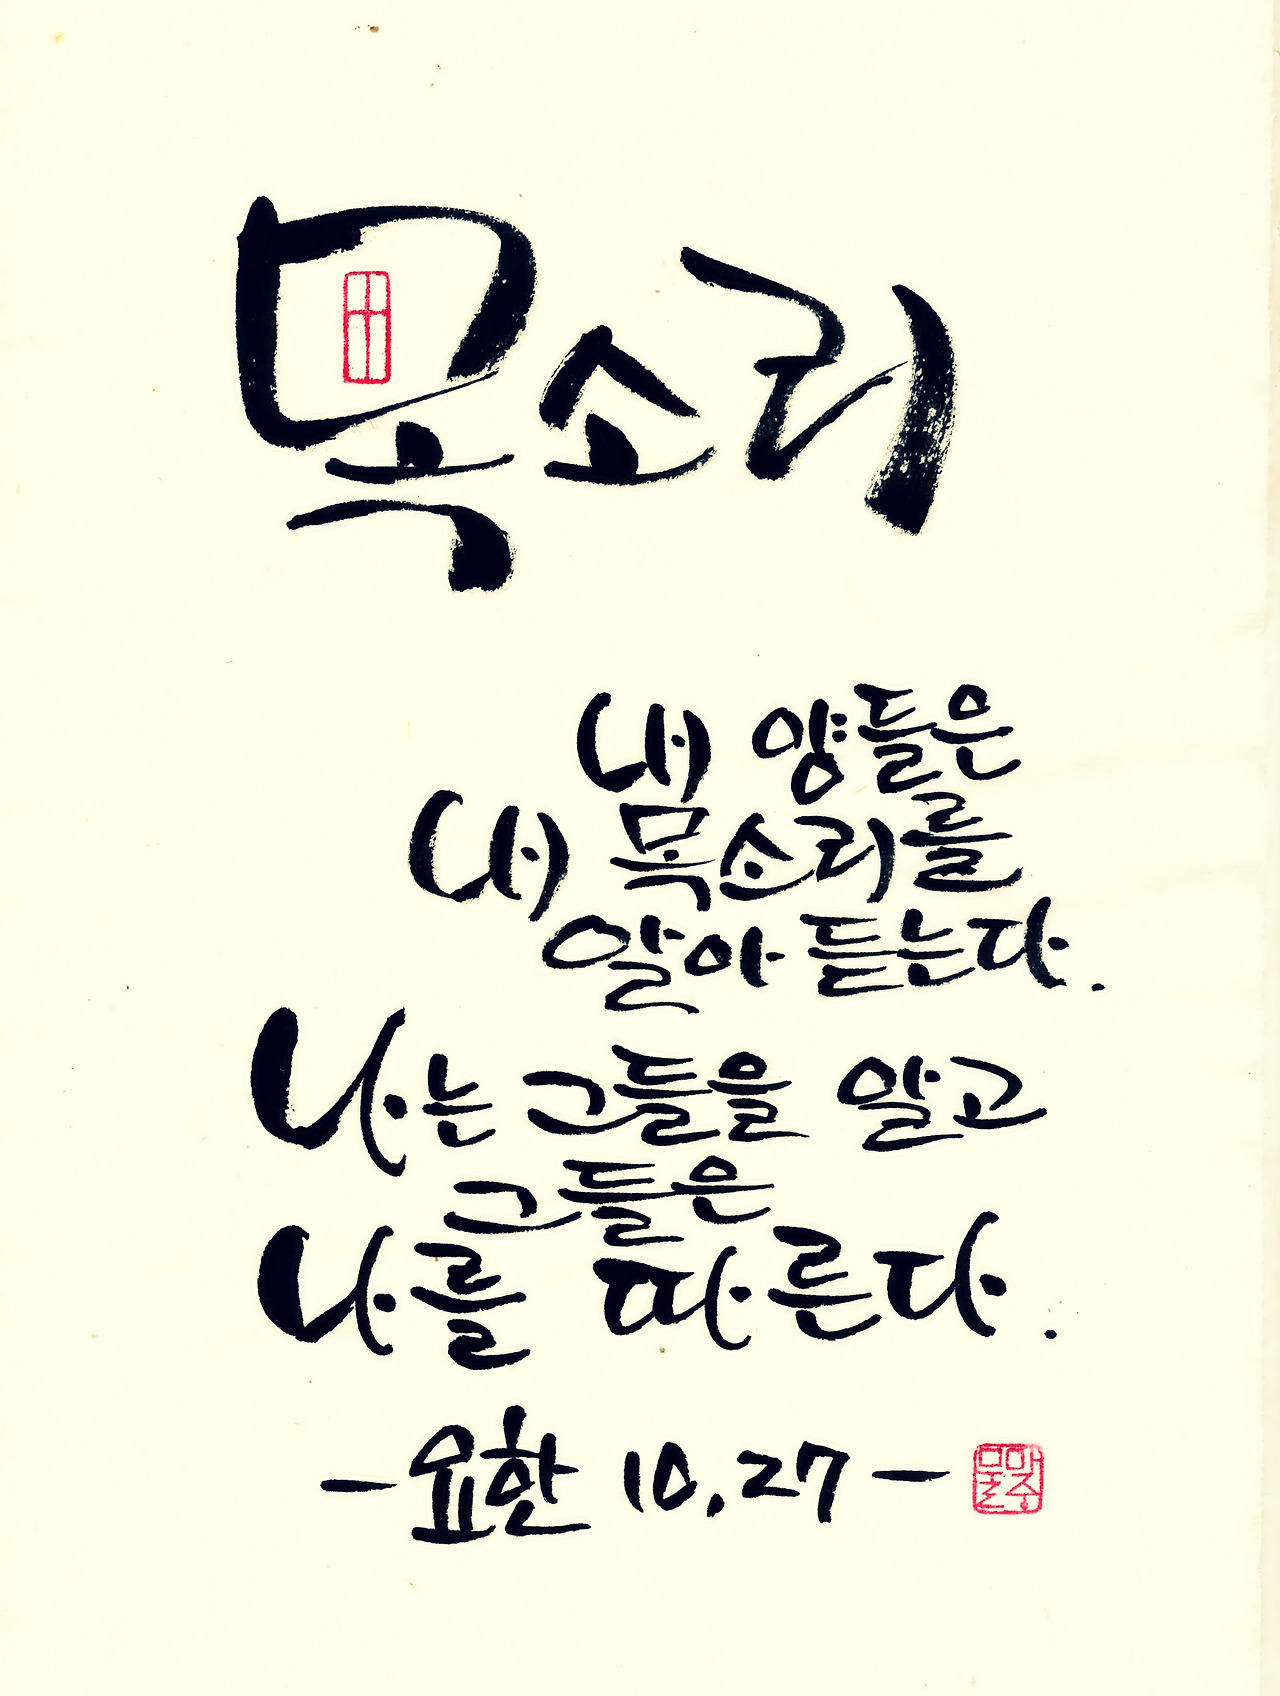 목소리
내 양들은
내 목소리를
알아 듣는다.
나는 그들을 알고
그들은
나를 따른다.
-요한 10.27-